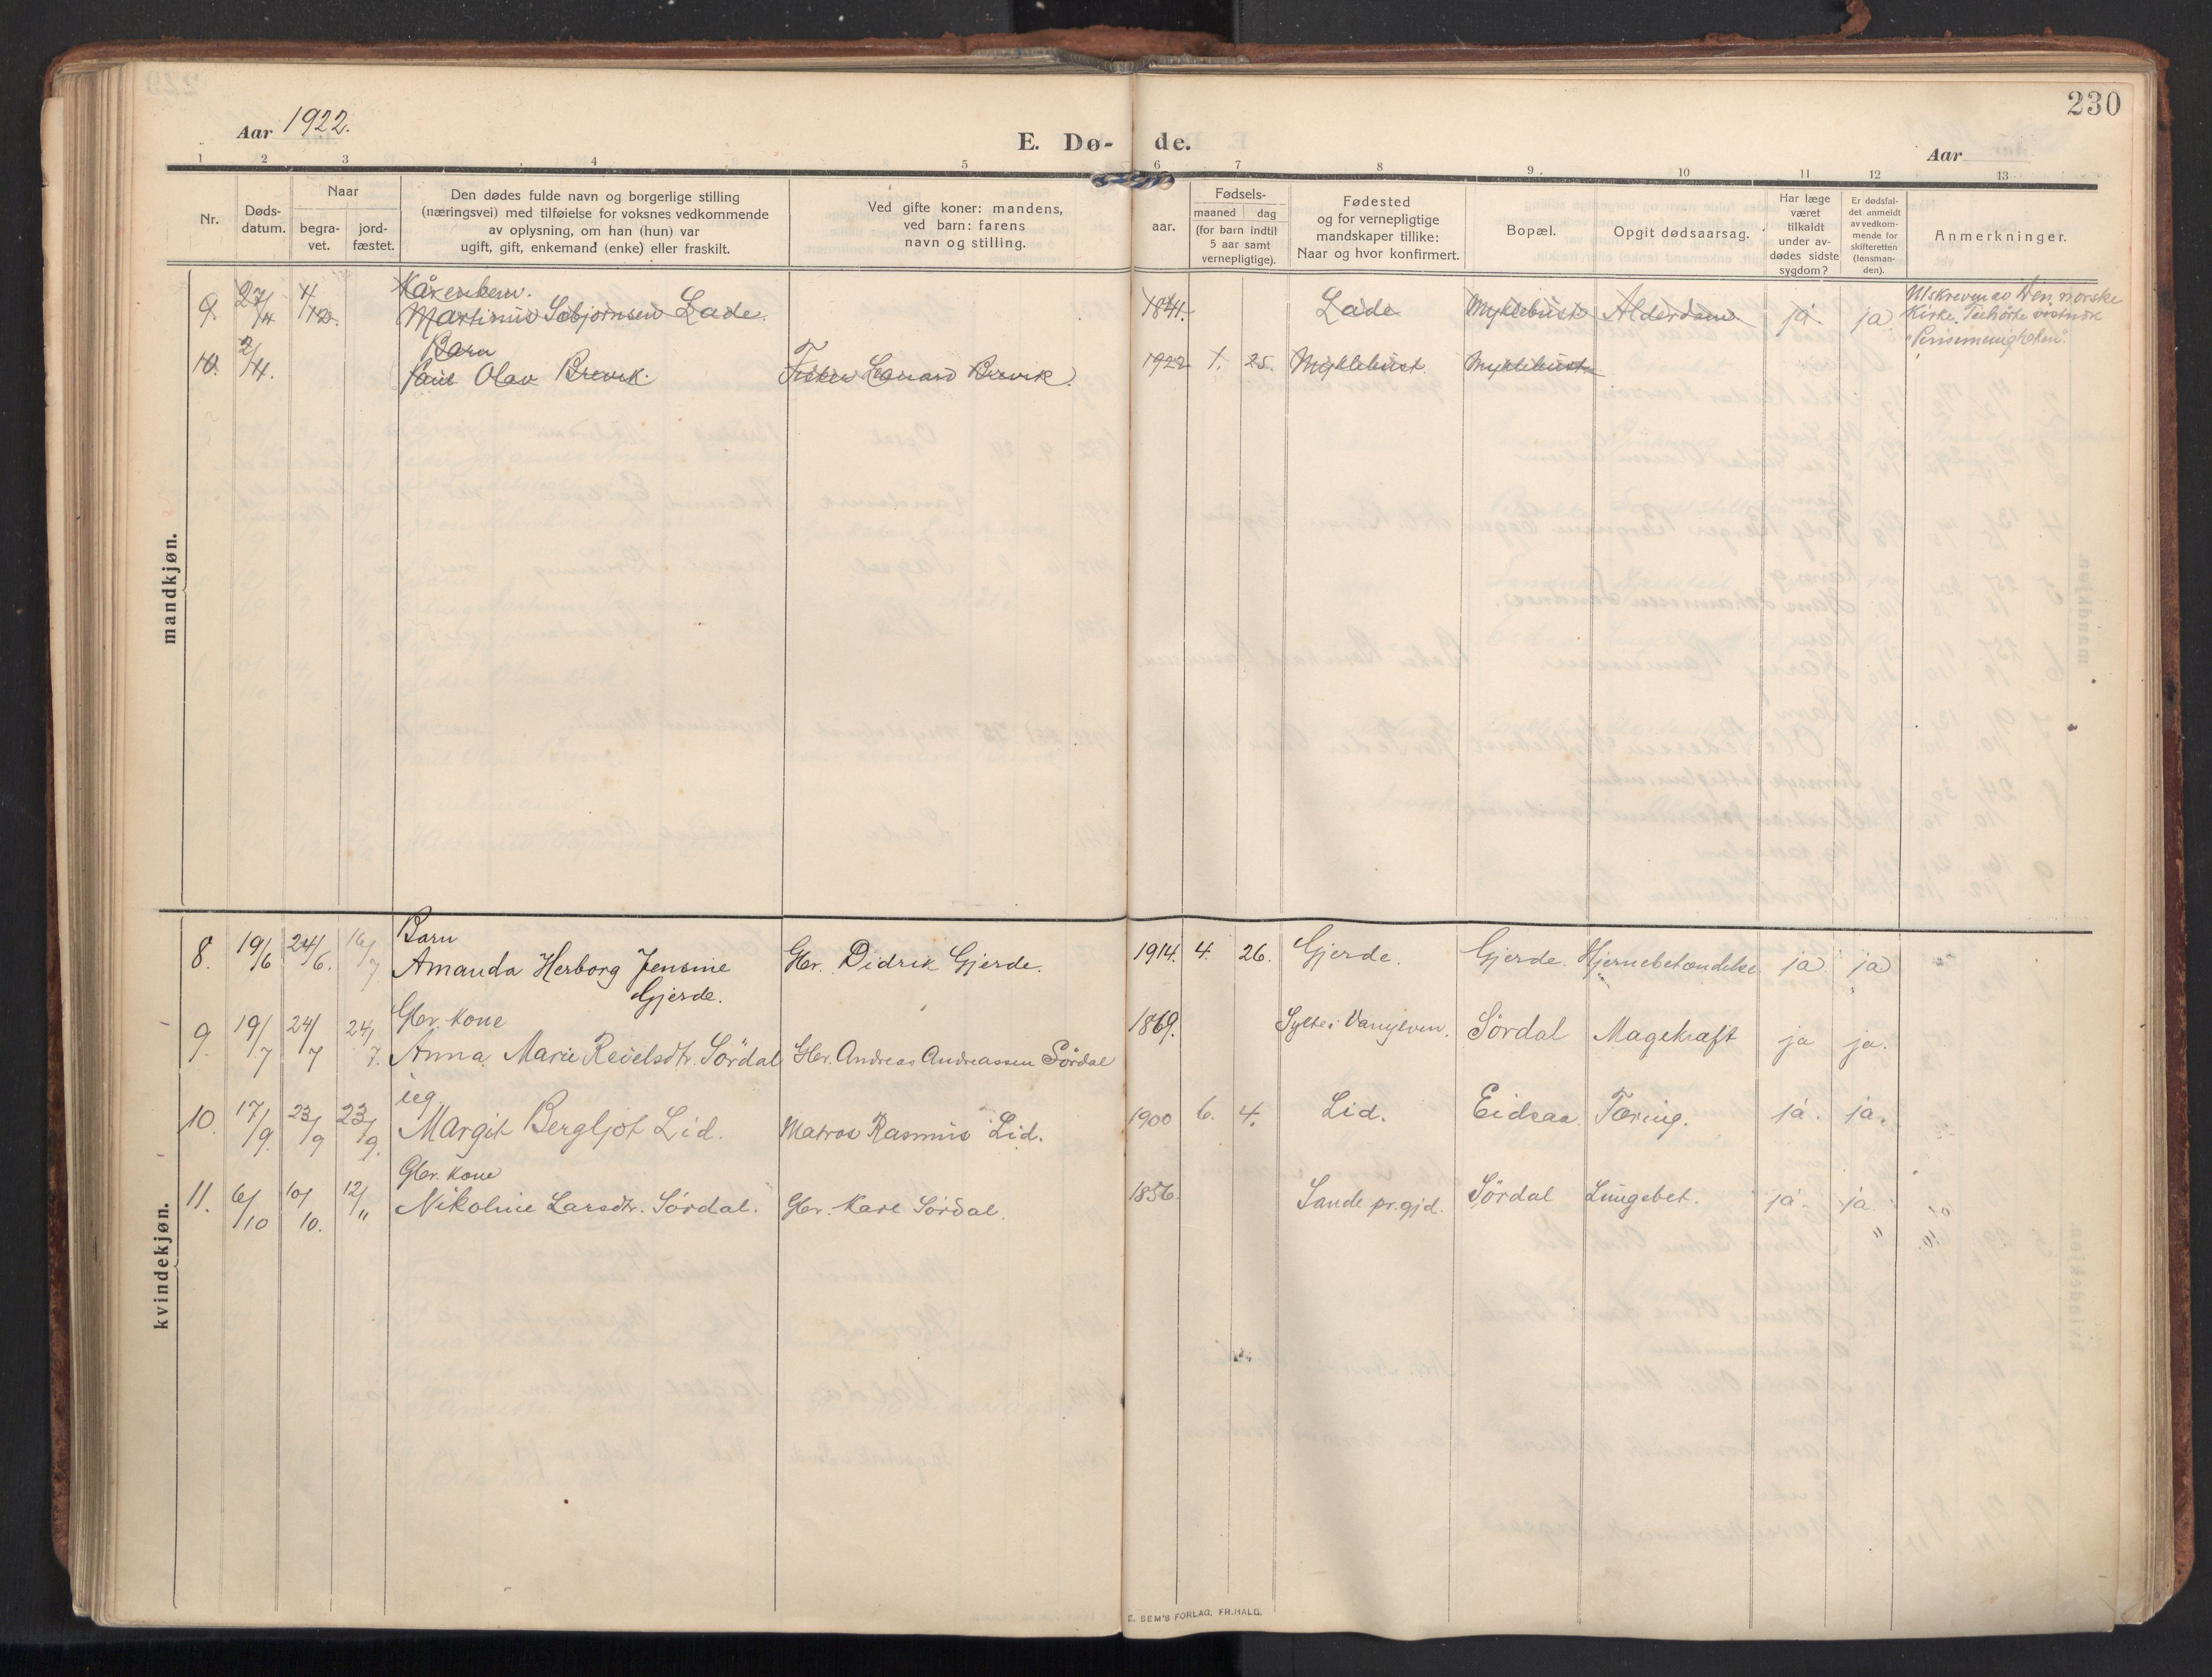 230
Aar 1922.
E. Dø- de.
Aar
1 2 3 4 5 6 7 8 9. 10 11 12 13
Nr.
Døds-
datum.
Naar
begra-
vet.
jord-
fæstet.
Den dødes fulde navn og borgerlige stilling
(næringsvei) med tilføielse for voksnes vedkommende
av oplysning, om han (hun) var
ugift, gift, enkemand (enke) eller fraskilt.
Ved gifte koner: mandens,
ved barn: farens
navn og stilling.
aar.
Fødsels-
maaned dag
(for barn indtil
5 aar samt
vernepligtige).
Fødested
og for vernepligtige
mandskaper tillike:
Naar og hvor konfirmert.
Bopæl.
Opgit dødsaarsag.
Har læge
været
tilkaldt
under av-
dødes sidste
sygdom?
Er dødsfal-
det anmeldt
av vedkom-
mende for
skifteretten
(lensman-
den).
Anmerkninger.
mandkjøn.
Kårenbem.
9. 27/4 4/12. Martinus Sæbjørnsen Lade. 1841. Lade Myklebust Alderdom ja. ja
Utskreven av Den norske
Kirke. Tilhørte
Barn
10. 2/4. Paul Olav Brevik. Fisker Edvard Brevik. 1922 1. 25. Myklebust. Myklebust
kvindekjøn.
Barn
8. 19/6 24/6. 16/7 Amanda Herborg Jensine Gbr. Didrik Gjerde. 1914. 4. 26. Gjerde. Gjerde. Hjernebetændelse ja. ja
Gjerde.
Gbr. kone
9. 19/7 24/7 24/7. Anna Marie Reielsdtr. Sördal Gbr. Andreas Andreassen Sördal 1869. Sylte i Vanylven. Sördal Magekræft ja ja.
ug.
10. 17/9. 23/9 23/9. Margit Bergljot Lid. Matros Rasmus Lid. 1900 6. 4. Lid. Eidsaa Tæring. ja. ja.
Gbr. kone
11. 6/10 10/10. 12/" Nikoline Larsdtr. Sördal. Gbr. Karl Sördal. 1856. Sande pr.gjd. Sördal Lungebet. ja. ja.
E. SEM'S FORLAG, FR.HALD.